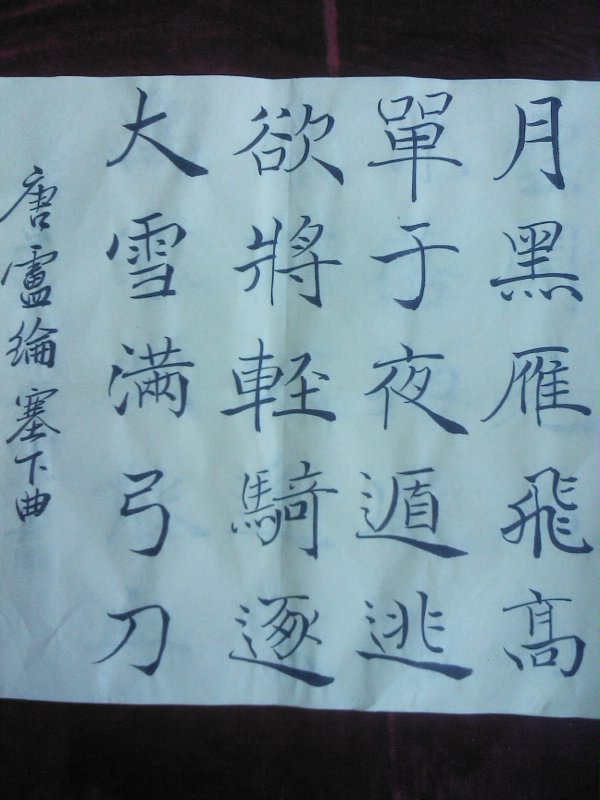 月黑雁飛髙
單于夜遁逃
欲將輊騎逐
大雪満弓刀
唐盧綸塞下曲